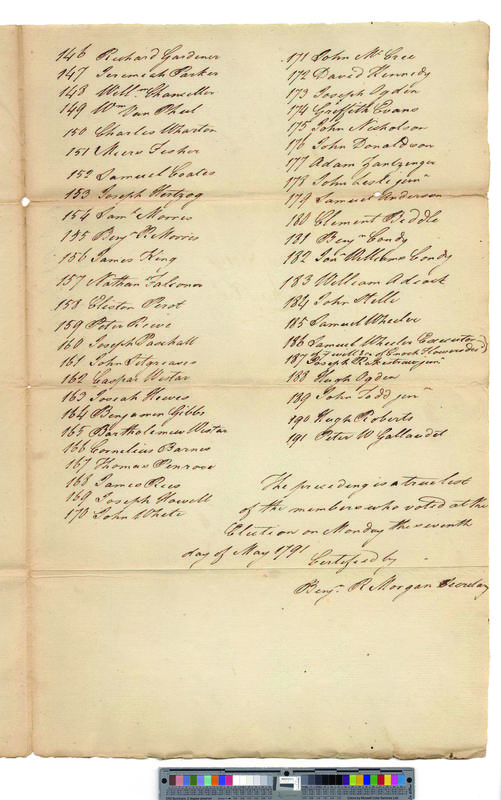 146 Richard Gardener
147 Jeremiah Parker
148 Will.m Chancellor
149 Wm Van Phul
150 Charles Wharton
151 Miers Fisher
152 Samuel Coates
153 Joseph Hertzog
154 Sam.l Morris
155 Benj.n R Morris
156 James King
157 Nathan Falconer
158 Elliston Perot
159 Peter Reeve
160 Joseph Paschall
161 John Pilgreaves
162 Caspar Wistar
163 Josiah Hewes
164 Benjamin Gibbs
165 Bartholemew Wistar
166 Cornelius Barnes
167 Thomas Penrose
168 James Rees
169 Joseph Howell
170 John White
171 John McCree
172 David Kennedy
173 Joseph Ogden
174 Griffith Evans
175 John Nicholson
176 John Donaldson
177 Adam Zantzinger
178 John Leske junr
179 Samuel Anderson
180 Clement Biddle
181 Benj.n Condy
182 Jon. Williams Condy
183 William Adcock
184 John Kelle
185 Samuel Wheeler
186 Samuel Wheeler Executor
of the will &c of Enoch decd
187 Joseph Rakestraw junr
188 Hugh Ogden
189 John Todd junr
190 Hugh Roberts
191 Peter W Gallaudet
The preceding is a true list
of the members who voted at the
Election on Monday the seventh
day of May 1791
Certified by
Benj.n R Morgan Secretary